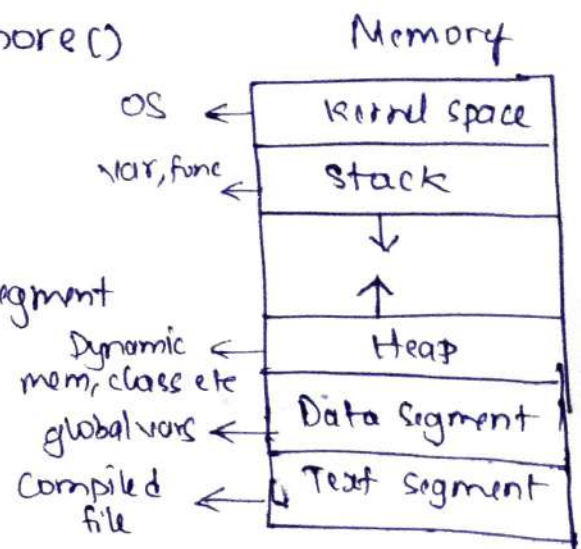 Memory
OS ← Kernel space
var, func ← Stack
Dynamic mem, class etc ← Heap
global vars ← Data Segment
Compiled file ← Text Segment